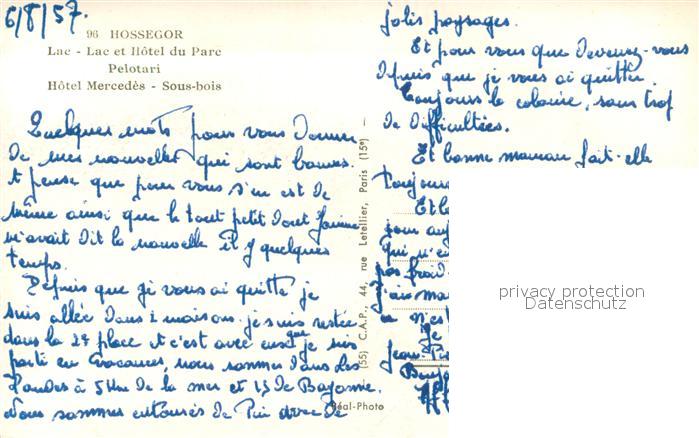 6/8/57.
96 HOSSEGOR
Lac - Lac et Hôtel du Parc
Pelotari
Hôtel Mercedès - Sous-bois
Quelques mots pour vous donner
de mes nouvelles qui sont bonnes.
et pense que pour vous s'en est de
même ainsi que le tout petit dont
m'avait dit la nouvelle il y quelques
temps.
Depuis que je vous ai quitté je
suis allée dans 2 maisons. je suis restée
dans la 2e place et c'est avec eux que je suis
parti en vacances, nous sommes dans les
Landes à 5 Km de la mer et 15 de Bayonne.
Nous sommes entourés de Pin avec de
(55) C.A.P., 44, rue Letellier, Paris (15e) -
Réal-Photo
jolis paysages.
Et pour vous que devenez-vous
depuis que je vous ai quitté.
Toujours la colonie, sans trop
de difficultées.
Et bonne maman fait-elle
Toujours
Et
qui n'
pas froid
j'ai
n'es
je
Jean-
privacy protection
Datenschutz